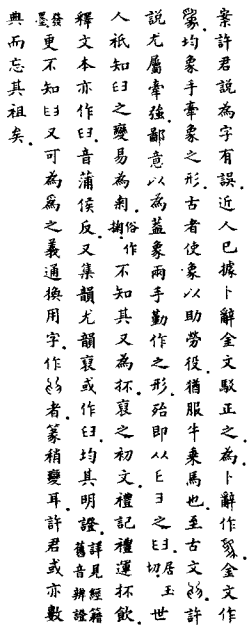 案許君說為字有誤近人已據卜辭金文駁正之為卜辭作金文作
均象手牽象之形.古者使象以助勞役.猶服牛乘馬也.至古文許
說尤屬牽強.鄙意以為蓋象兩手勤作之形.殆即从𦥑.居玉切.世
人祇知𦥑之變易為匊.俗作掬.不知其又為抔裒之初文.禮記禮運抔飲.
釋文本亦作𦥑.音蒲侯反.又集韻尤韻裒或作𦥑.均其明證.詳見經籍舊音辨證
發墨.更不知𦥑又可為爲之義通換用字.作者.篆稍變耳.許君或亦數
典而忘其祖矣.